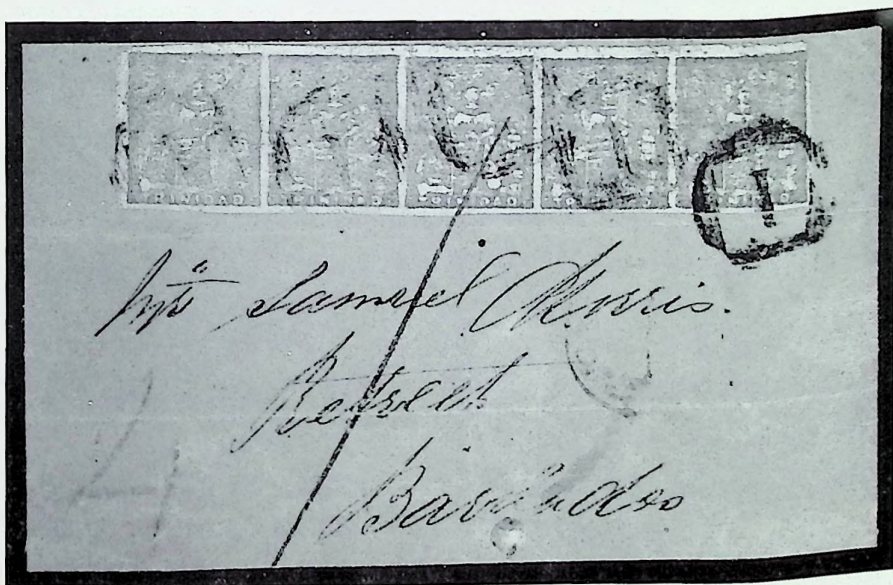 TRINIDAD TRINIDAD TRINIDAD TRINIDAD TRINIDAD
1
Samuel Morris.
Retreat
Barbados